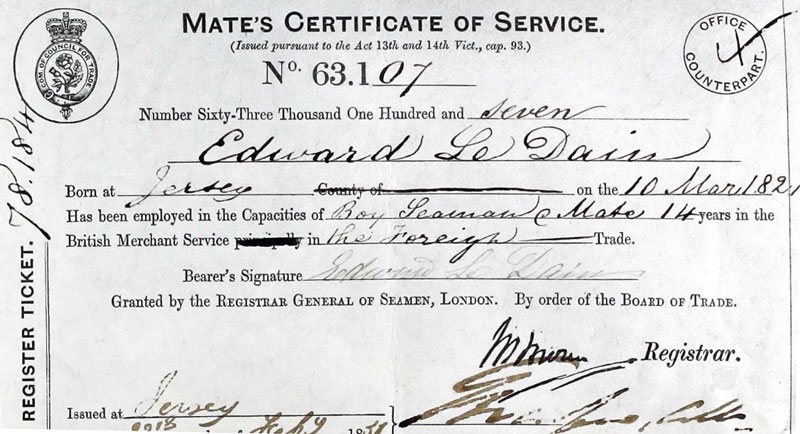 MATE'S CERTIFICATE OF SERVICE.
(Issued pursuant to the Act 13th and 14th Vict., cap. 93.)
No. 63.107
COM OF COUNCIL FOR TRADE
OFFICE
4
COUNTERPART.
Number Sixty-Three Thousand One Hundred and seven
Edward Le Dain
Born at Jersey County of on the 10 Mar, 1821
Has been employed in the Capacities of Boy Seaman & Mate 14 years in the
British Merchant Service principally in the Foreign Trade.
Bearer's Signature Edward Le Dain
Granted by the REGISTRAR GENERAL OF SEAMEN, LONDON. By order of the BOARD OF TRADE.
Registrar.
Issued at Jersey
REGISTER TICKET. 78.184